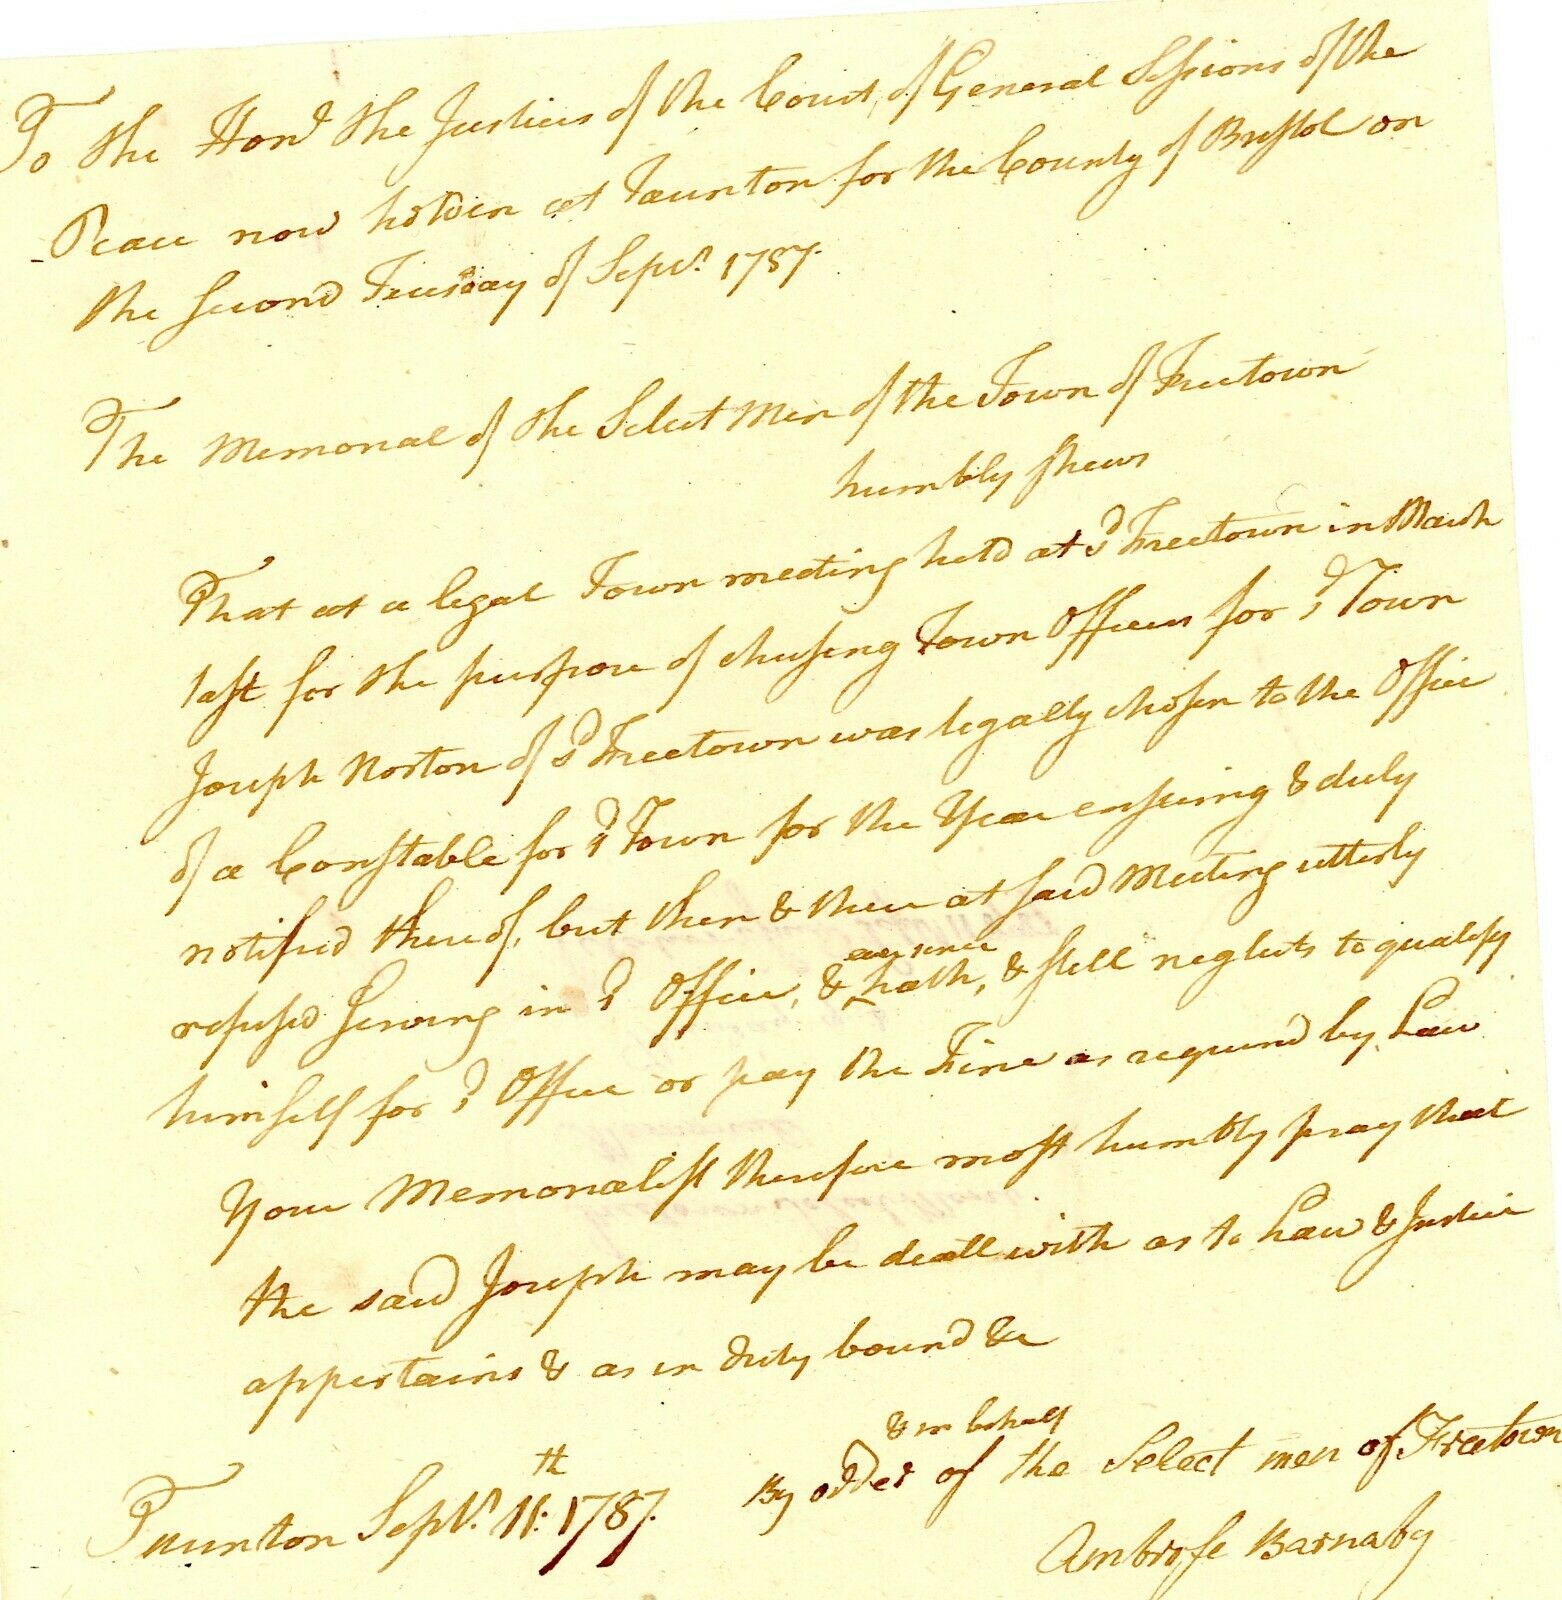 To the Hond. the Justices of the Court of General Sessions of the
Peace now holden at Taunton for the County of Bristol on
the second Tuesday of Sepr. 1787.
The Memorial of the Select Men of the Town of Freetown
humbly shews
That at a legal Town meeting held at sd Freetown in March
last for the purpose of chusing Town Officers for sd Town
Joseph Norton of sd Freetown was legally chosen to the Office
of a Constable for sd Town for the Year ensuing & duly
notified thereof, but then & there at said Meeting utterly
refused serving in sd Office, & ever since hath, & still neglects to qualify
himself for sd Office or pay the Fine as required by Law
Your Memorialist therefore most humbly pray that
the said Joseph may be dealt with as to Law & Justice
appertains & as in duty bound &c
& in behalf
By order of the Select men of Freetown
Taunton Sepr. 11th: 1787.
Ambrose Barnaby